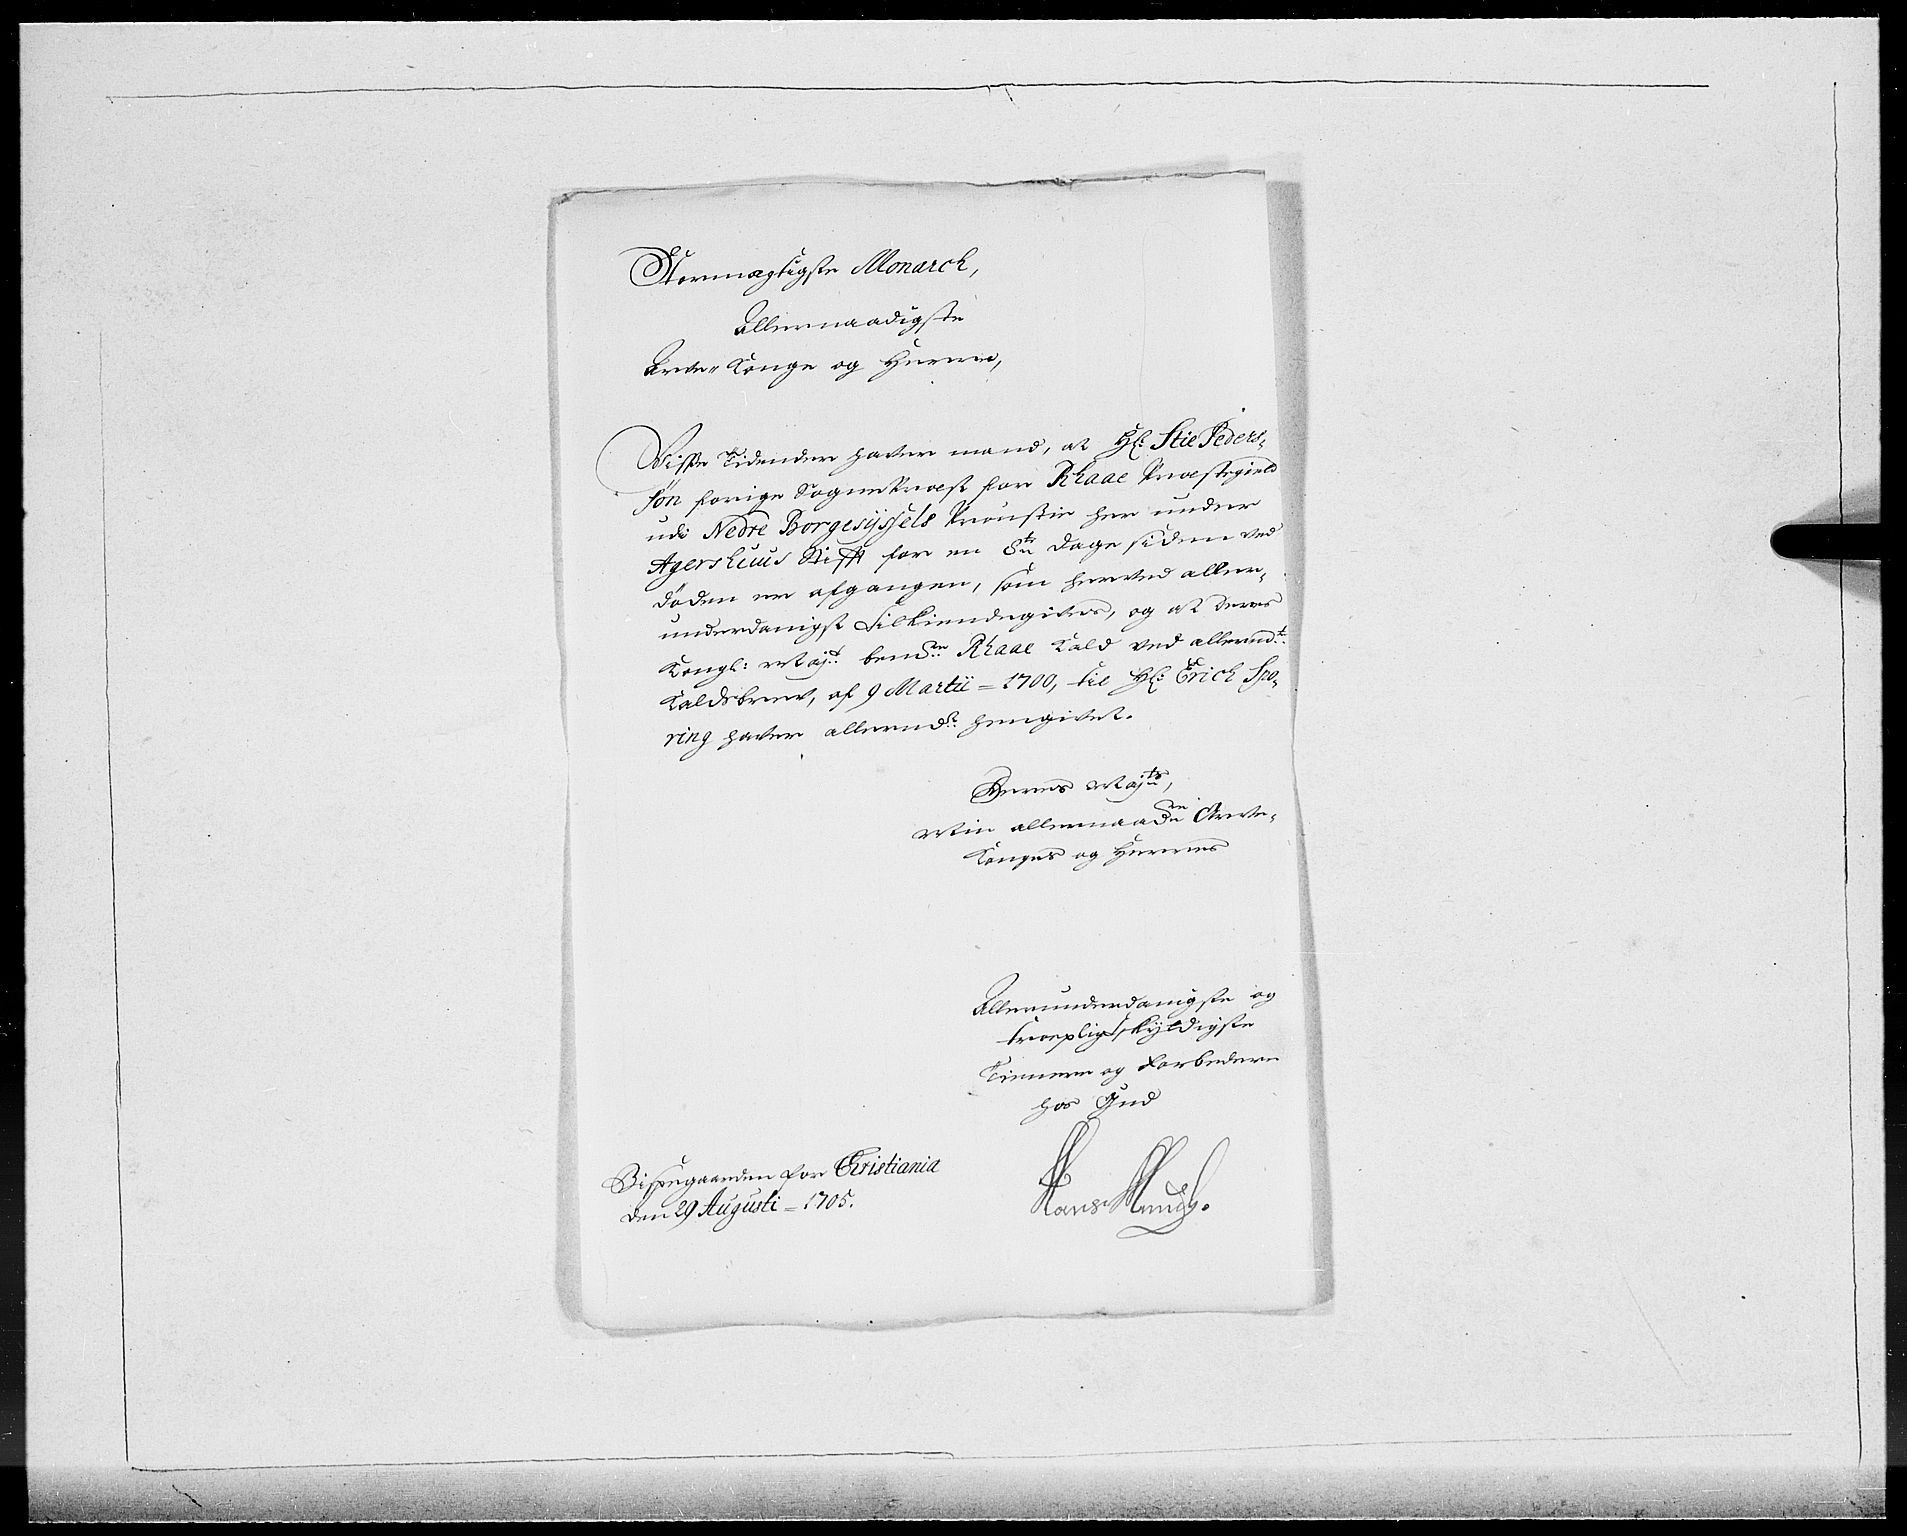 Stormægtigste Monarch,
Allernaadigste
Arve- Konge og Herre,
Visse Tidender haver mand, at Hr: Stie Peders-
søn forige SognePræst for Rhaae Præstegield
udi Nedre BorgesÿsselsProustie her under
Agershuus Stifft for en 8te Dage siden ved
døden er afgangen, som herved aller-
underdanigst tilkiendegives, og at Deres
Kongl: Majt: bemte Rhaae Kald ved allerndt:
Kaldsbrev, af 9 Martii = 1700, til Hr: Erich Spo-
ring haver allerndst: hengivet.
Deres Majts,
Min allernaadste Arve-
Konges og Herres
Allerunderdanigste og
troepligtskÿldigste
Tienere og Forbedere
hos Gud
Bispegaarden for Christiania
den 29 Augusti = 1705.
Hans Munch.